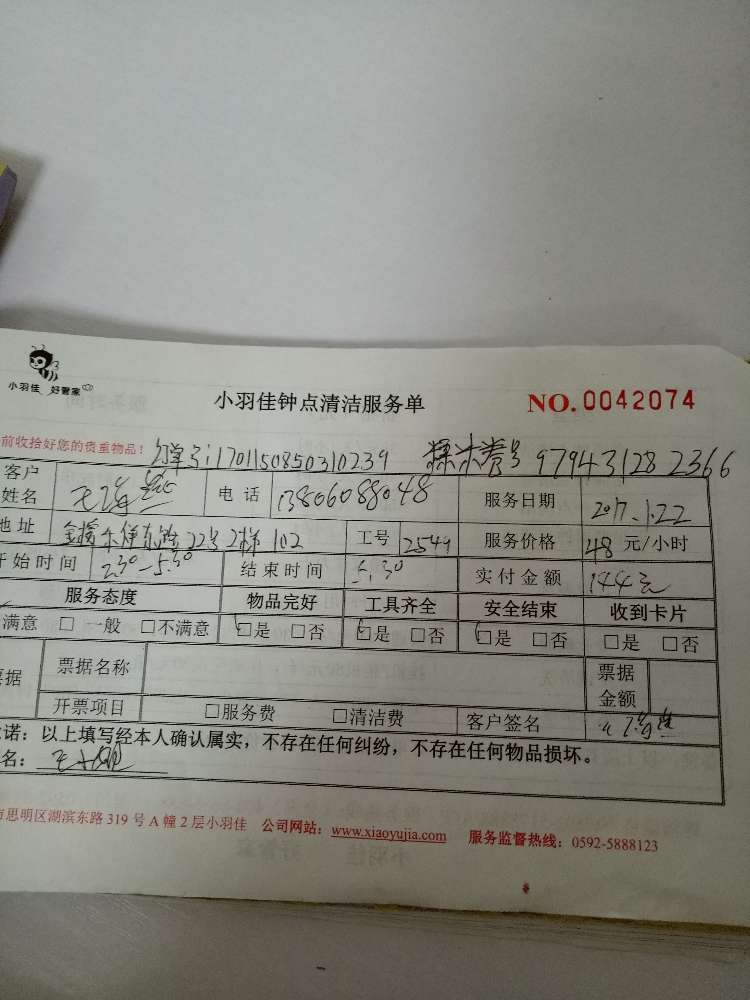 小羽佳 好管家
小羽佳钟点清洁服务单 NO.0042074
前收拾好您的贵重物品! 订单号:1701150850310239 糯米券号 979431282366
客户姓名 电话 13806088048 服务日期 2017.1.22
地址 东路22号2梯102 工号 2549 服务价格 48 元/小时
开始时间 2:30-5:30 结束时间 5:30 实付金额 144元
服务态度 物品完好 工具齐全 安全结束 收到卡片
满意 □ 一般 □不满意 □是 □否 □是 □否 □是 □否 □是 □否
据 票据名称 票据金额
开票项目 □服务费 □清洁费 客户签名
诺:以上填写经本人确认属实,不存在任何纠纷,不存在任何物品损坏。
名:
市思明区湖滨东路 319 号 A 幢 2 层小羽佳 公司网站:www.xiaoyujia.com 服务监督热线:0592-5888123